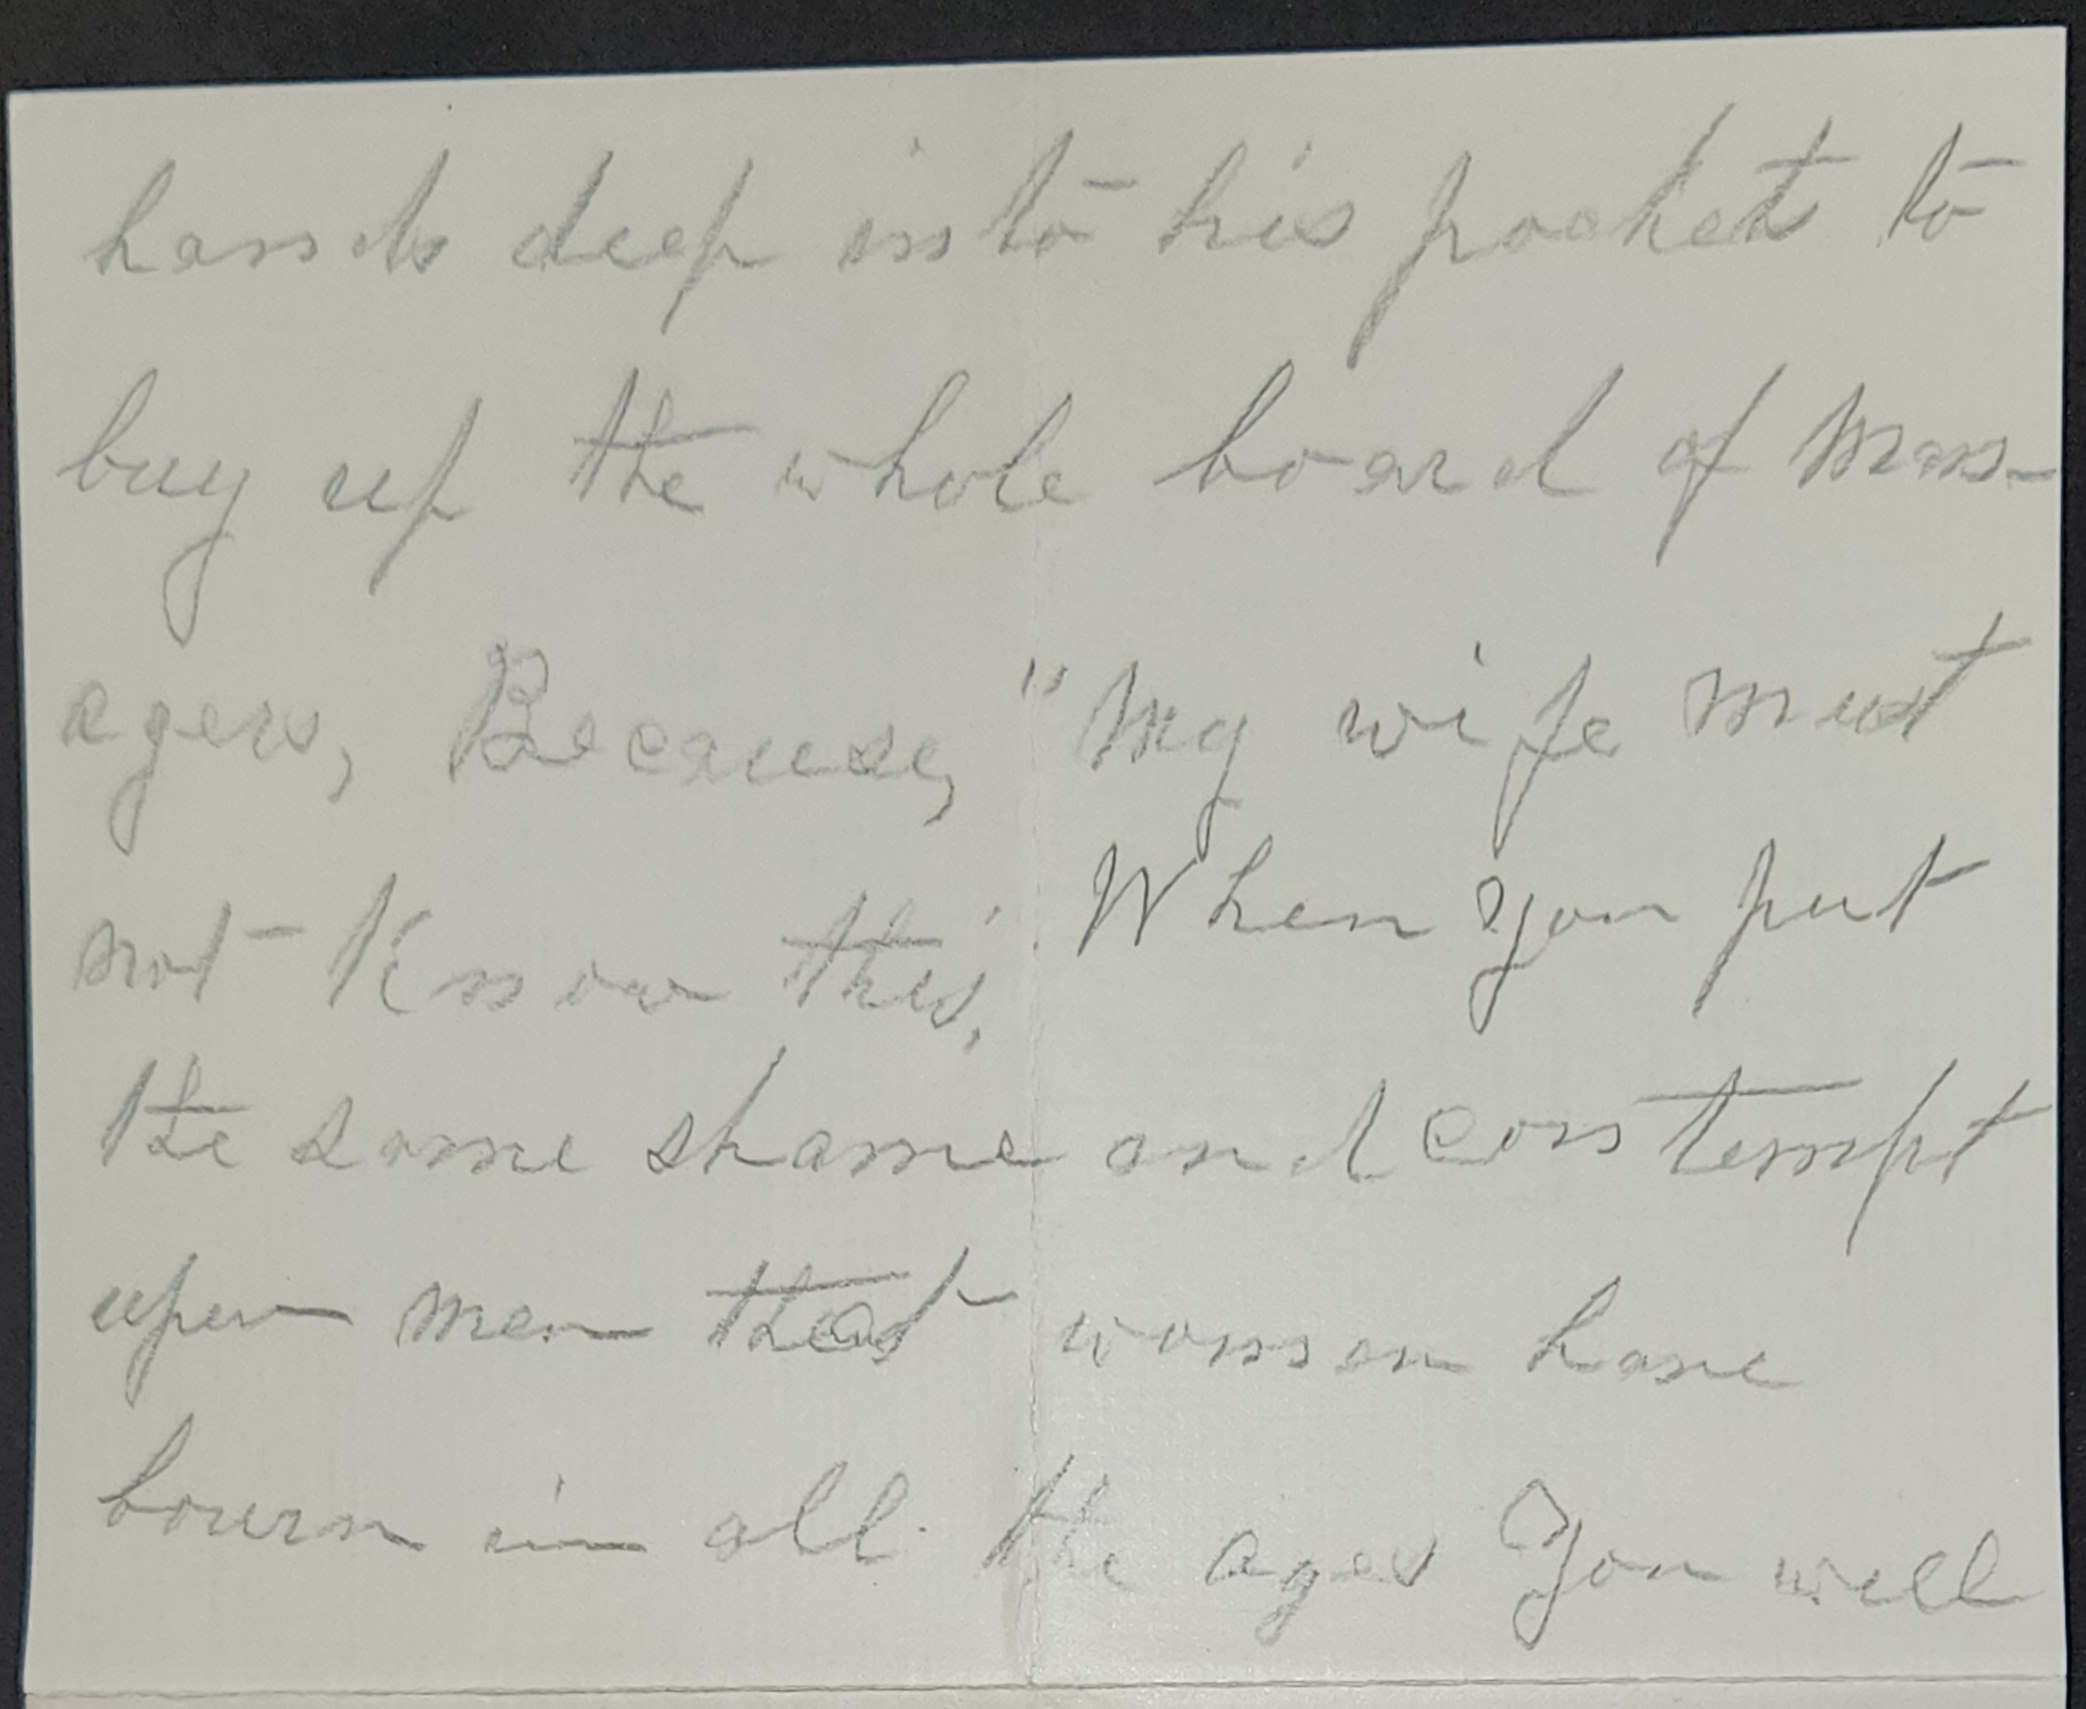 hands deep into his pockets to
buy up the whole board of Man-
agers, Because, "My wife must
not Know this,". When you put
the same shame and contempt
upon men that women have
bourn in all the ages You will